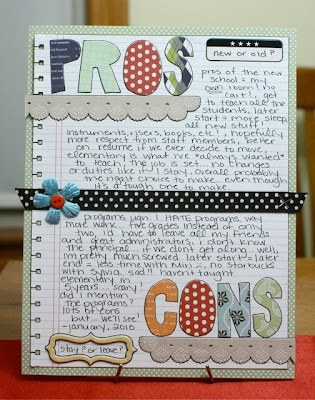 PROS
new or old?
pros of the new
school = my
own room! no
cart!, get
to teach all the
students, later
start = more sleep
all new stuff!
instruments, risers, books, etc!, hopefully
more respect from staff members, better
on resume if we ever decide to move,
elementary is what i've *always wanted*
to teach, the job is set - no changes
or duties like if i stay. overall probably
the right choice to make. even though
it's a tough one to make
programs. ugh. I HATE programs. way
more work... five grades instead of only
two, i'll have to leave all my friends
and great administrators, i don't know
the principal... if we don't get along - well,
i'm pretty much screwed, later start = later
end = less time with Mini -, no starbucks
with Sylvia. sad!! haven't taught
elementary in
5 years - scary
did i mention
the programs?
lots of cons
but... we'll see!
-january, 2010
CONS
stay? or leave?